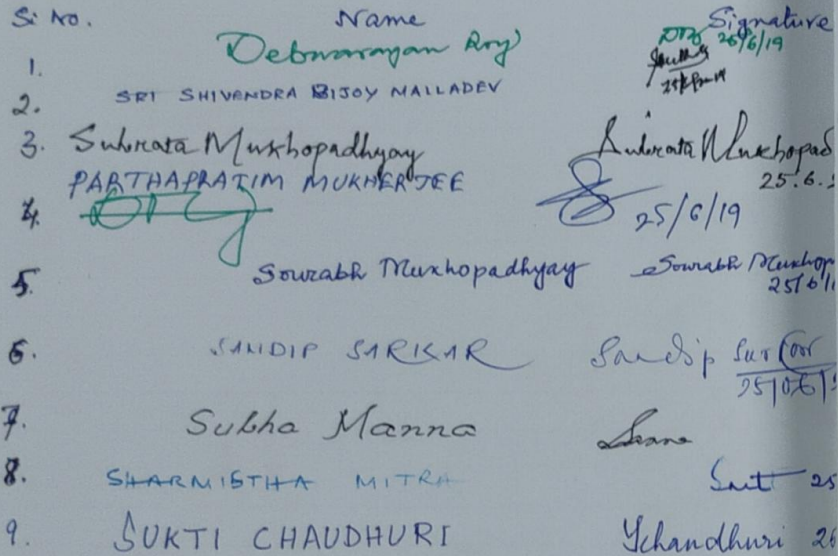 Sl No. Name Signature
1. Debnarayan Roy 25/6/19
2. SRI SHIVENDRA BIJOY MALLADEV
3. Subrata Mukhopadhyay Subrata Mukhopad
25.6.
PARTHAPRATIM MUKHERJEE
4. 25/6/19
5. Sourabh Mukhopadhyay Sourabh Mukhop
25/6/
6. SANDIP SARKAR Sandip Sarkar
25/06/
7. Subha Manna
8. SHARMISTHA MITRA 25
9. SUKTI CHAUDHURI Schaudhuri 2